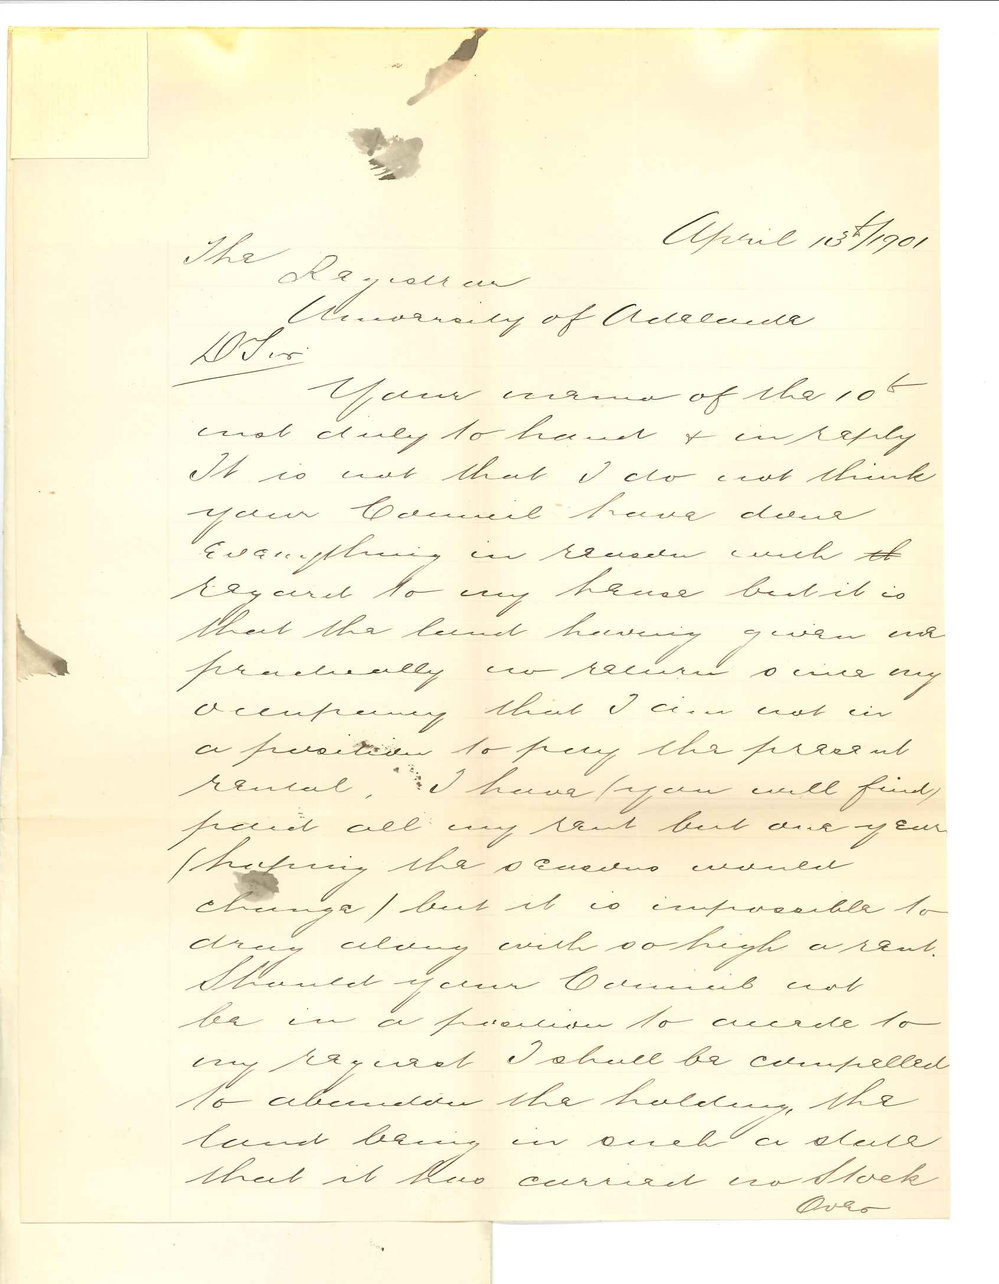 April 13th/1901
The
Registrar
University of Adelaide
D Sir
Your memo of the 10th
inst duly to hand & in reply
It is not that I do not think
your Council have done
everything in reason with th
regard to my house but it is
that the land having given me
practically no return since my
occupancy that I am not in
a position to pay the present
rental, I have (you will find)
paid all my rent but one year
(hoping the seasons would
change) but it is impossible to
drag along with so high a rent.
Should your Council not
be in a position to accede to
my request I shall be compelled
to abandon the holding, the
land being in such a state
that it has carried no Stock
Over